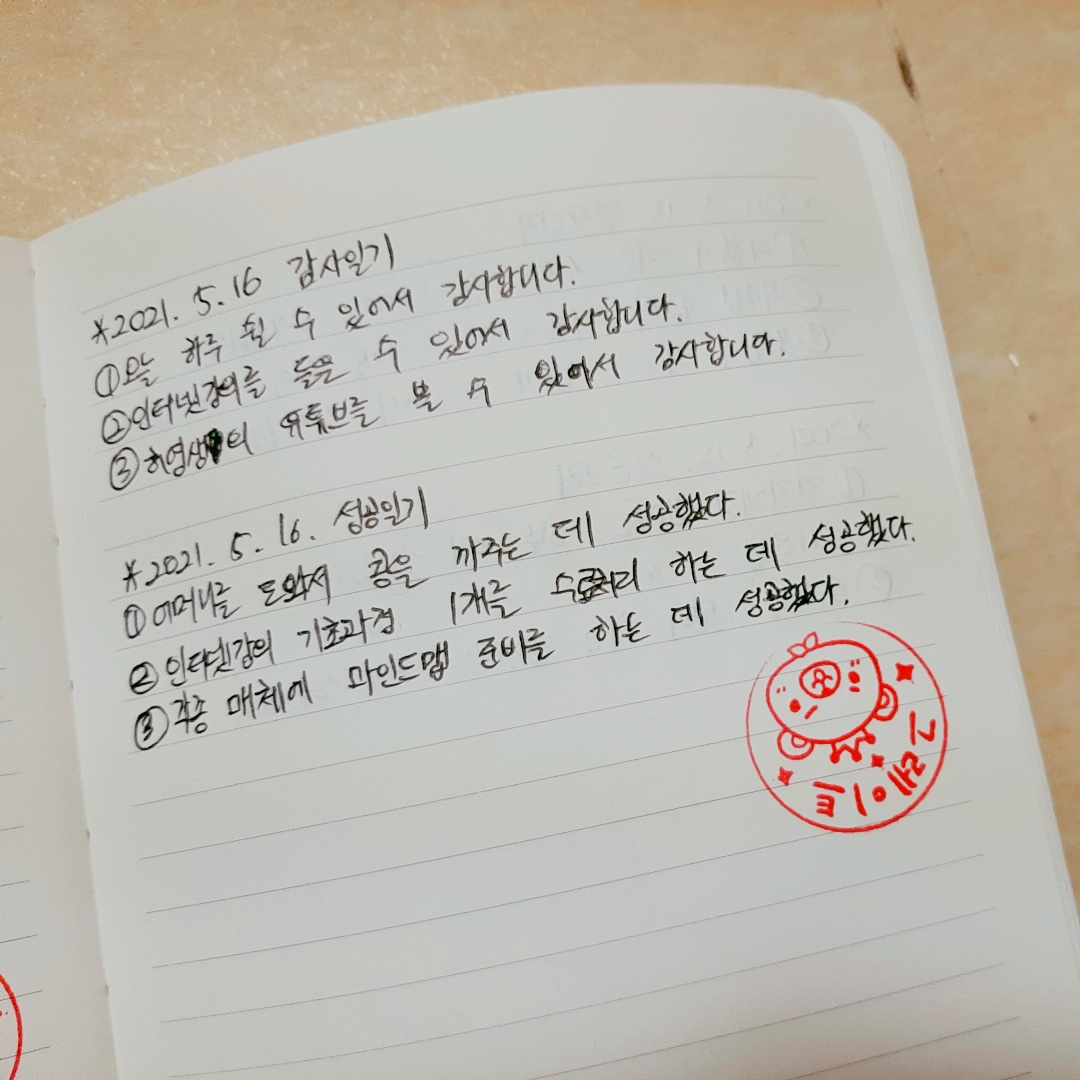 *2021. 5. 16 감사일기
①오늘 하루 쉴 수 있어서 감사합니다.
②인터넷강의를 들을 수 있어서 감사합니다.
③허영생의 유튜브를 볼 수 있어서 감사합니다.
*2021. 5. 16. 성공일기
①어머니를 도와서 콩을 까주는 데 성공했다.
②인터넷강의 기초과정 1개를 수료처리 하는 데 성공했다.
③각종 매체에 마인드맵 준비를 하는 데 성공했다.
그레이트